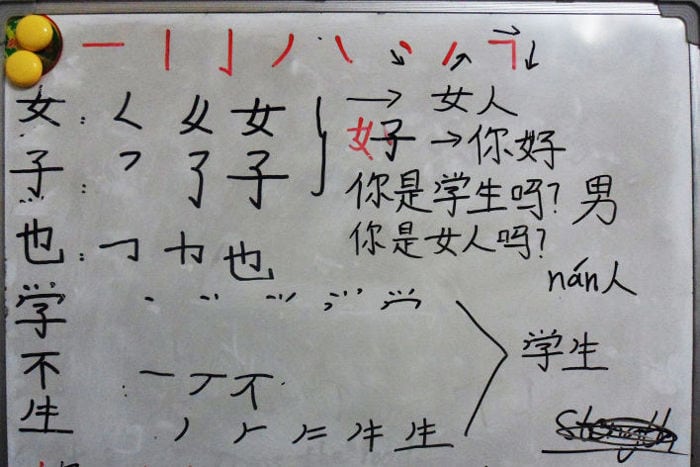 一 丨 亅 丿 ㇏
女: 𡿨 女 女人
子: 了 子 好 → 你好
你是学生吗? 男
也: 也 你是女人吗?
nán人
学 学生
不 一 丆 不
生 丿 生